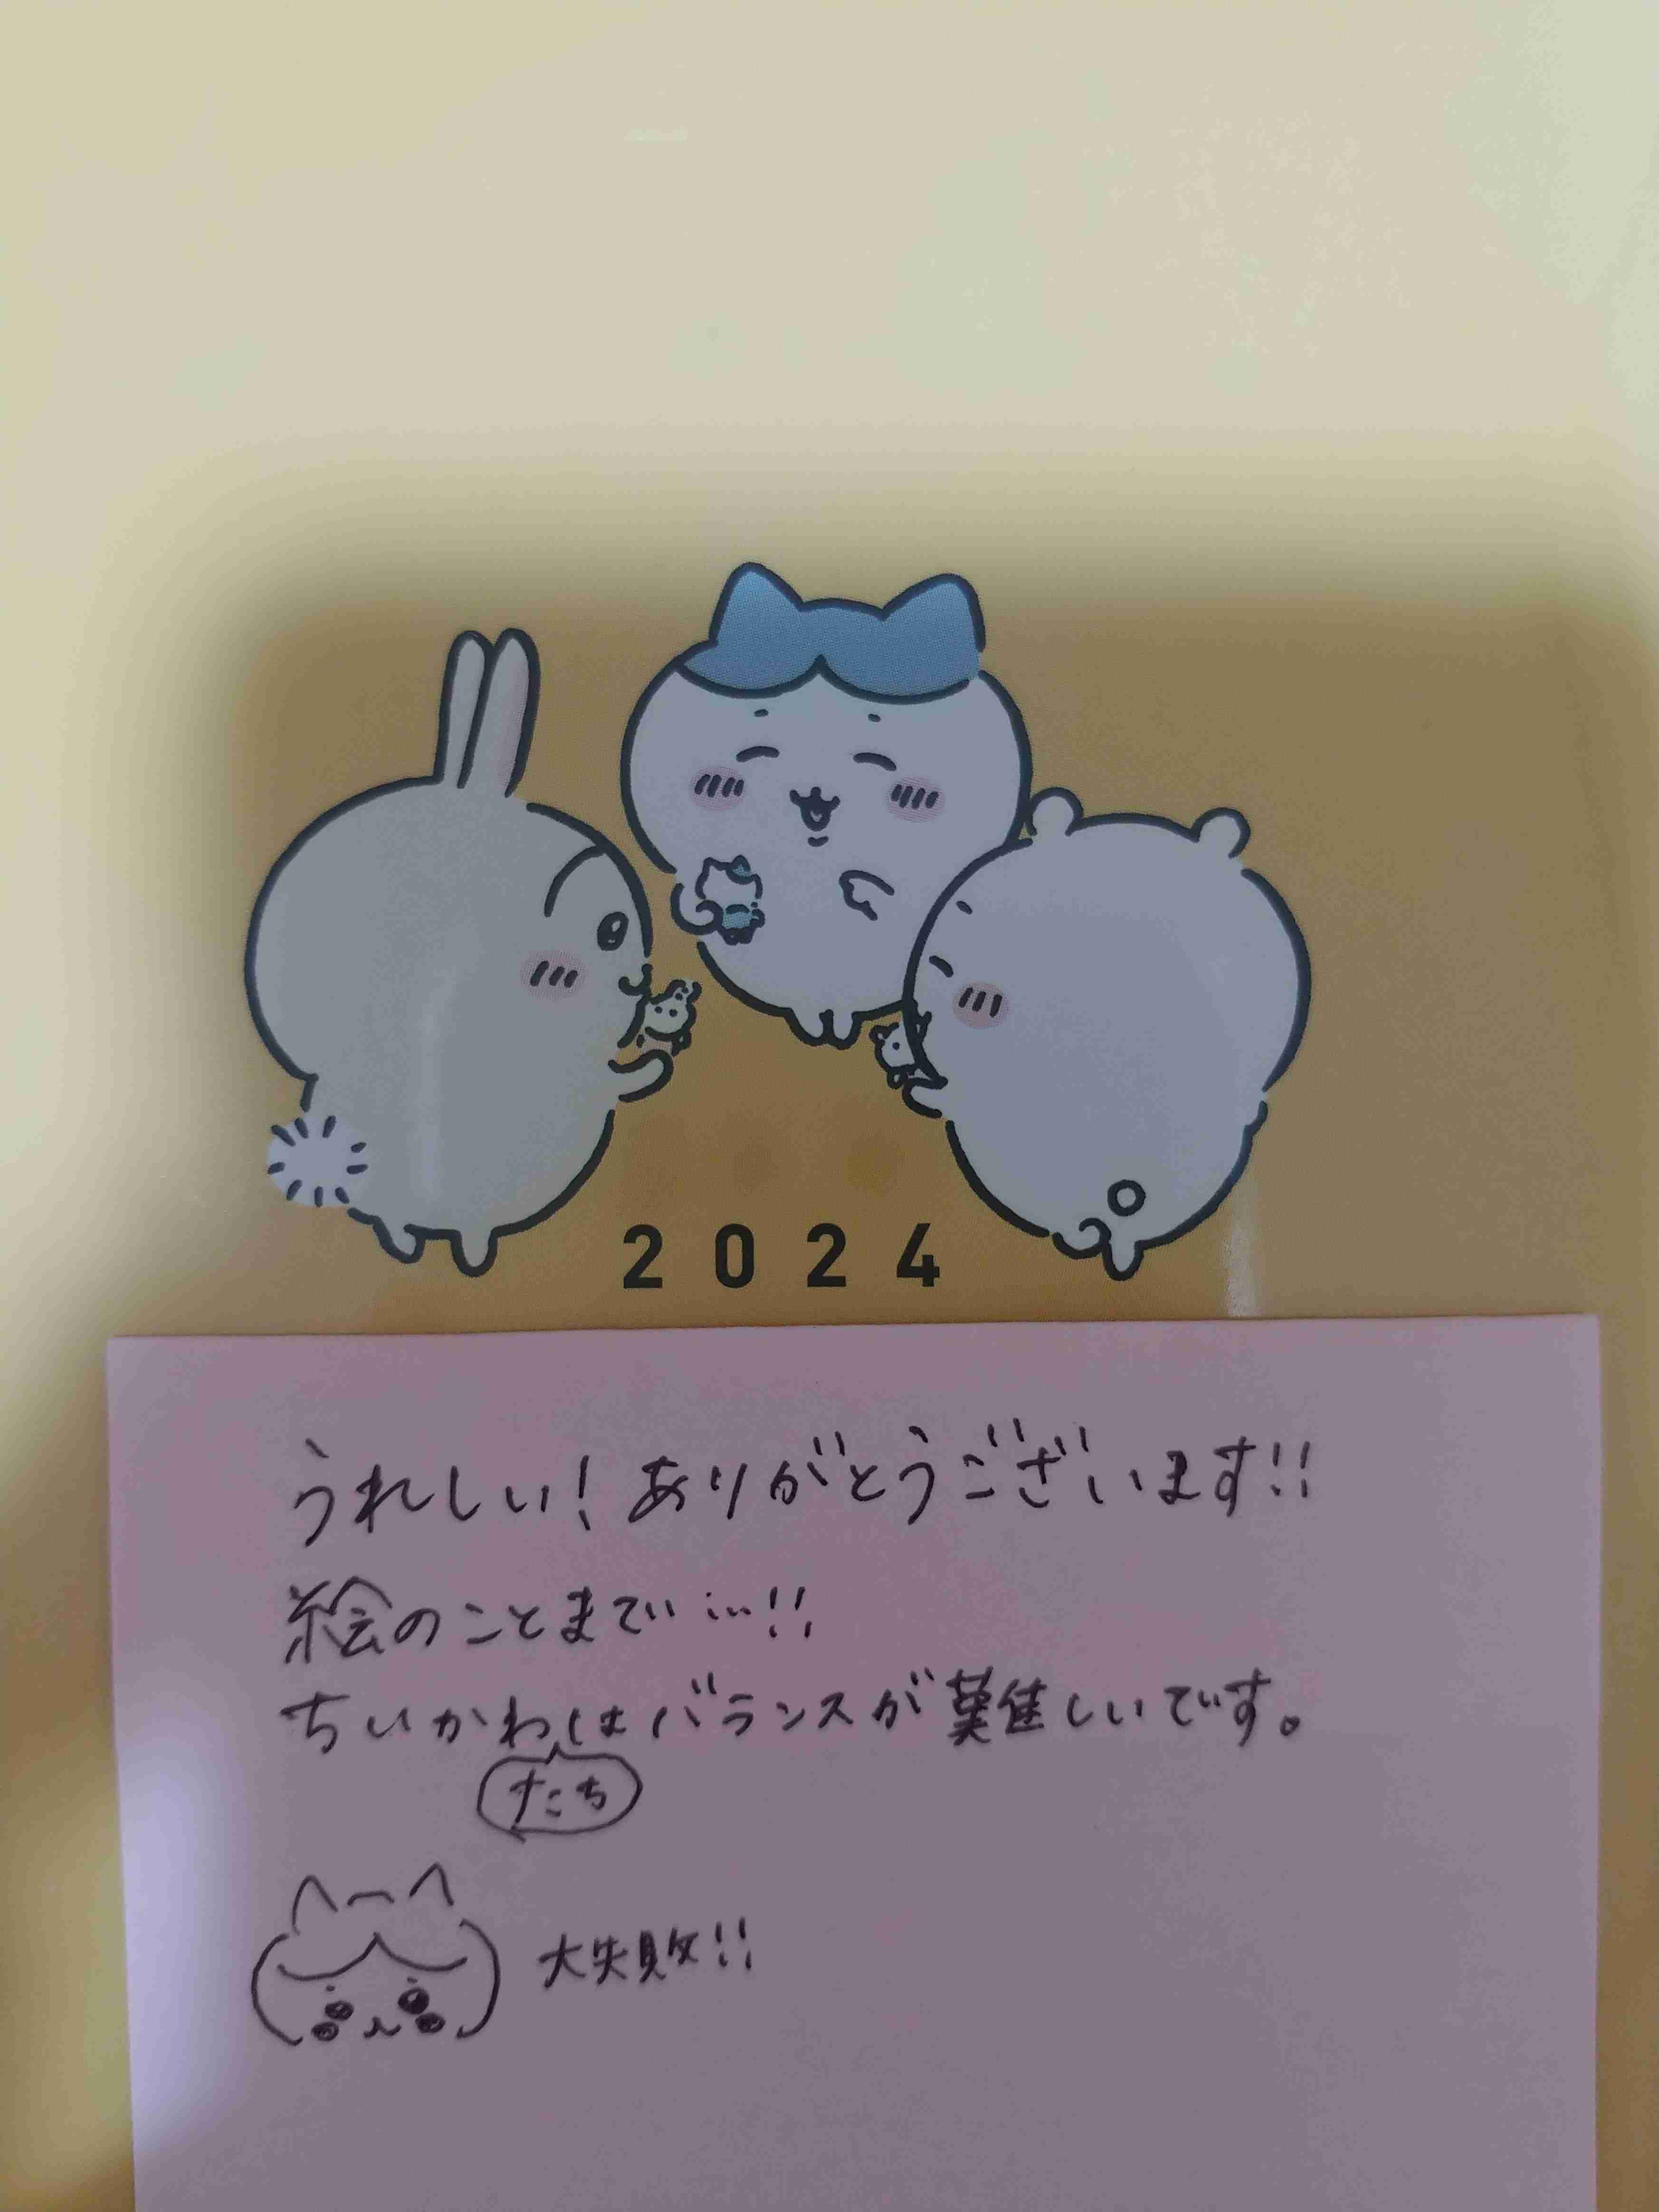 2024
うれしい!ありがとうございます!!
絵のことまでい…!!
ちいかわはバランスが難しいです。
たち
大失敗!!